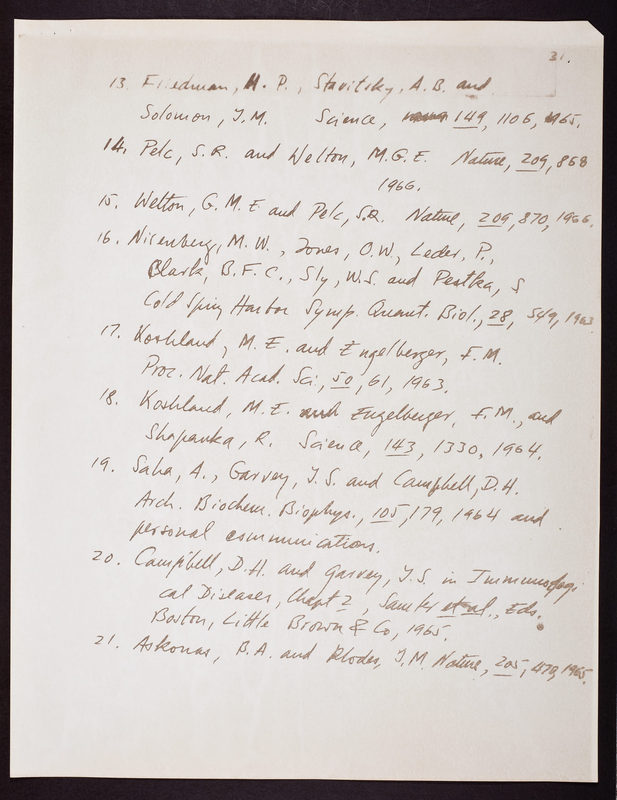 31.
13. Friedman, H. P., Stavitsky, A.B. and
Solomon, J.M. Science, 149, 1106, 1965.
14. Pelc, S.R. and Welton, M.G.E. Nature, 209, 868
1966.
15. Welton, G.M.E and Pelc, S.R. Nature, 209, 870, 1966.
16. Nirenberg, M.W., Jones, O.W, Leder, P.,
Clark, B.F.C., Sly, W.S. and Pestka, S
Cold Spring Harbor Symp. Quant. Biol., 28, 549, 1963
17. Koshland, M.E. and Engelberger, F.M.
Proc. Nat. Acad. Sci., 50, 61, 1963.
18. Koshland, M.E. and Engelberger, F.M., and
Shapanka, R. Science, 143, 1330, 1964.
19. Saha, A., Garvey, J.S. and Campbell, D.H.
Arch. Biochem. Biophys., 105, 179, 1964 and
personal communications.
20. Campbell, D.H. and Garvey, J.S. in Immunologi
cal Diseases, Chapt 2, Samter et al., Eds.
Boston, Little Brown & Co, 1965.
21. Askonas, B.A. and Rhodes, J.M. Nature, 205, 470, 1965.